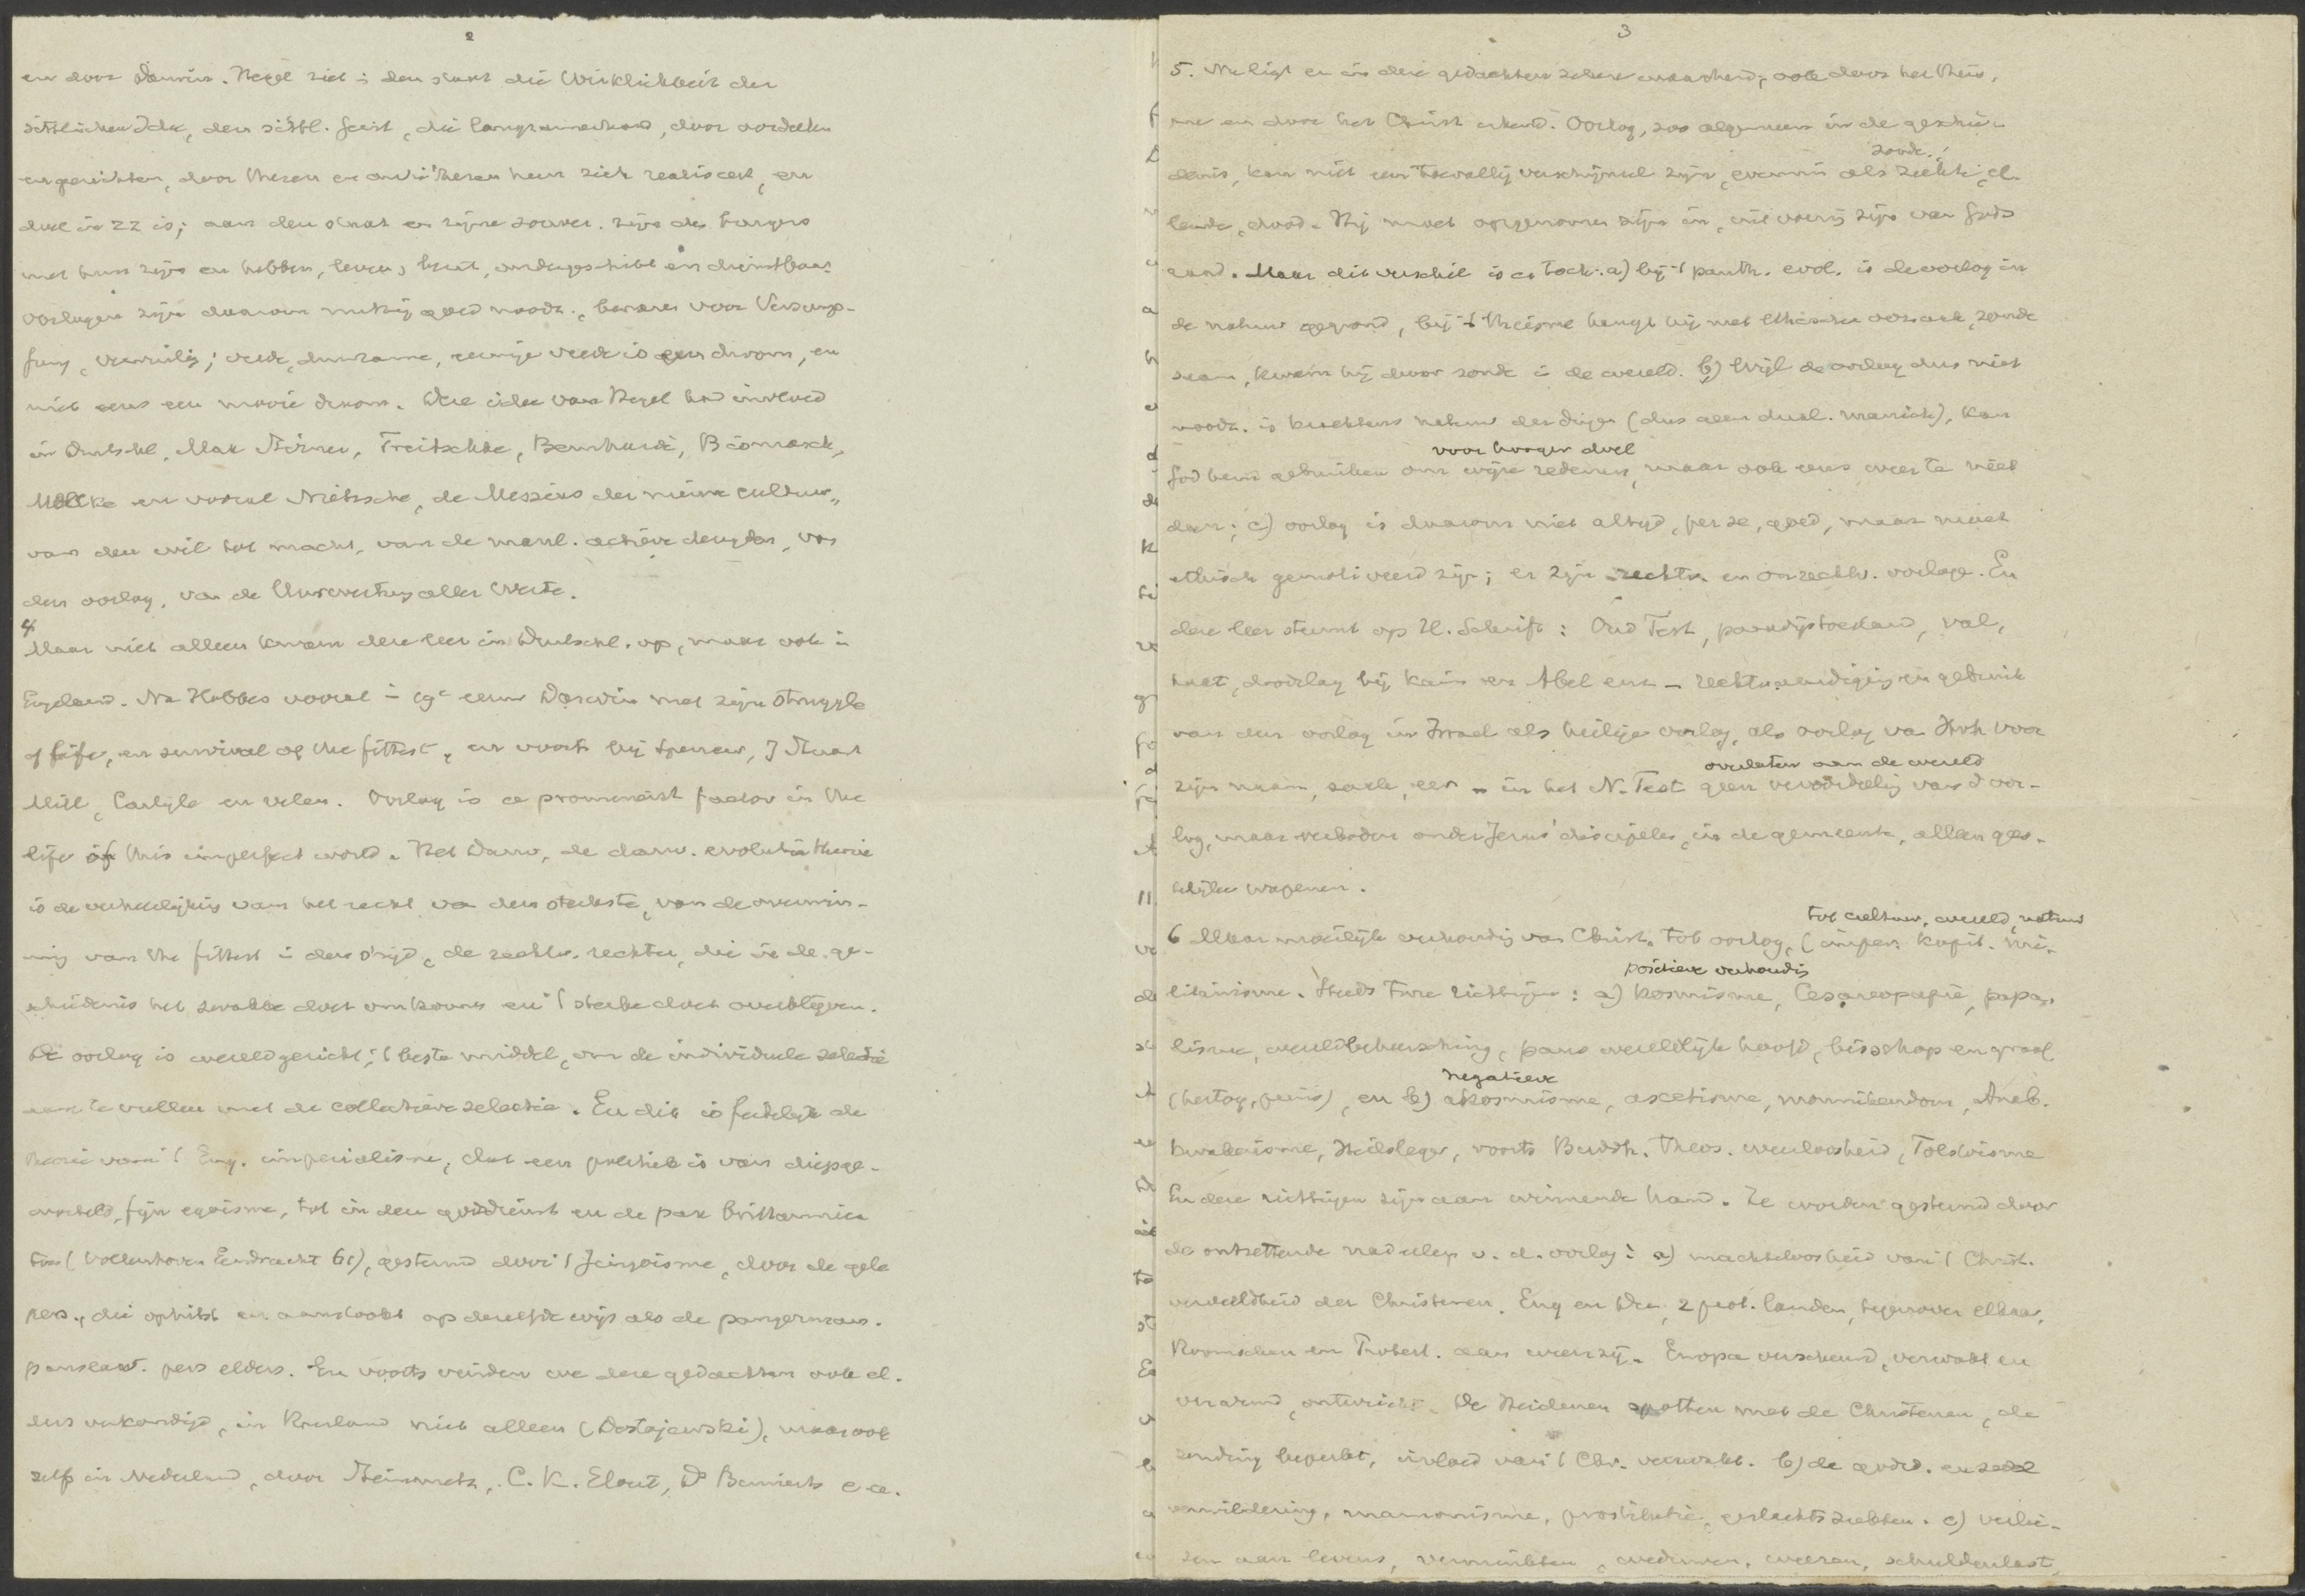 2
en door Darwin. Hegel ziet i den staat die Wirklichkeit der
sittlichen Idee, den sittl. Geist, die langzamerhand, door oordeelen
en gerichten, door thesen en antithesen heen zich realiseert, en
dus in zz is; aan den staat en zijne souver. zijn de burgers
met hun zijn en hebben, leven, ondergeschikt en dienstbaar.
oorlogen zijn daarom nuttig goed noodz., bewaren voor Versump-
fung, vervuiling; vrede, duurzame, eeuwige vrede is een droom, en
niet eens een mooie droom. Deze idee van Hegel had invloed
in Duitschl, Max Stirner, Treitschke, Bernhardi, Bismarck,
Moltke en vooral Nietzsche, de Messias der nieuwe cultuur,
van den wil tot macht, van de mannl. actieve deugden, van
den oorlog, van de Umwertung aller Werte.
4
Maar niet alleen kwam deze leer in Duitschl. op, maar ook i
Engeland. Na Hobbes vooral i 19e eeuw Darwin met zijn struggle
of life, en survival of the fittest, en voorts bij Spencer, J Stuart
Mill, Carlyle en velen. Oorlog is a prominent factor in the
life of this imperfect world. Het Darw, de darw. evolutietheorie
is de verheerlijking van het recht van den sterkste, van de overwin-
ning van the fittest i den strijd, de rechtv. rechter, die in de ge-
schiedenis het zwakke doet omkomen en 't sterke doet overblijven.
De oorlog is wereldgericht, 't beste middel, om de individuele selectie
aan te vullen met de collectieve selectie. En dit is feitelijk de
theorie van 't Eng. imperialisme, dat een politiek is van diepge-
worteld, fijn egoisme, tot in den godsdienst en de pax brittannica
toe (Vollenhoven Eendracht 61), gesteund door 't Jingoisme, door de gele
pers, die ophitst en aanstookt op dezelfde wijs als de pangermaan.
panslaw. pers elders. En voorts vinden we deze gedachten ook el-
ders verkondigd, in Rusland niet alleen (Dostojewski), maar ook
zelfs in Nederland, door Steinmetz, C. K. Elout, Dr e.a.
3
5. Nu ligt er in deze gedachten zekere waarheid, ook door het theïs-
me en door het Christ erkend. Oorlog, zoo algemeen in de geschie-
zonde,
denis, kan niet een toevallig verschijnsel zijn, evenmin als ziekte, el-
lende, dood. Hij moet opgenomen zijn in, uitvoering zijn van Gods
raad. Maar dit verschil is er toch: a) bij 't panth. evol. is de oorlog in
de natuur gegrond, bij 't theisme hangt hij met ethische oorzaak, zonde
saam, kwam hij door zonde i de wereld. b) Wijl de oorlog dus niet
noodz. is krachtens natuur der dingen (dus geen dual. manich), kan
voor hooger doel
God hem gebruiken om wijze redenen, maar ook eens weer te niet
doen; c) oorlog is daarom niet altijd, per se, goed, maar moet
ethisch gemotiveerd zijn; er zijn rechtv. en onrechtv. oorlogen. En
deze leer steunt op H. Schrift: Oud Test, paradijstoestand, val,
haat, doodslag bij Kain en Abel enz - rechtvaardiging en gebruik
van den oorlog in Israel als heilige oorlog, als oorlog van Jhvh voor
overlaten aan de wereld
zijn naam, zaak, eer - in het N. Test geen veroordeeling van d oor-
log, maar verboden onder Jezus' discipelen, in de gemeente, alleen gees-
telijke wapenen.
tot cultuur, wereld, natuur
6 Maar moeilijk verhouding van Christ. tot oorlog, (imper. kapit. mi-
positieve verhouding
litairisme. Steeds twee richtingen: a) kosmisme, Cesareopapie, papa-
lisme, wereldbeheersching, paus wereldlijk hoofd, bisschop en graaf
negatieve
(hertog, prins), en b) akosmisme, ascetisme, monnikendom, Anab.
kwakerisme, Heilsleger, voorts Buddh. Theos. weerloosheid, Tolstoisme
En deze richtingen zijn aan winnende hand. Ze worden gesteund door
de ontzettende nadeelen v. d. oorlog: a) machteloosheid van 't Christ.
verdeeldheid der Christenen. Eng en Du, 2 prot. landen, tegenover elkaar,
Roomschen en Protest. aan weerszij. Europa verscheurd, verzwakt en
verarmd, ontwricht. De Heidenen spotten met de Christenen, de
zending beperkt, invloed van 't Chr. verzwakt. b) de godsd. en zedel
verwildering, mammonisme, prostitutie, geslachtsziekten. c) verlie-
zen aan levens, verminkten, weduwen, weezen, schuldenlast,